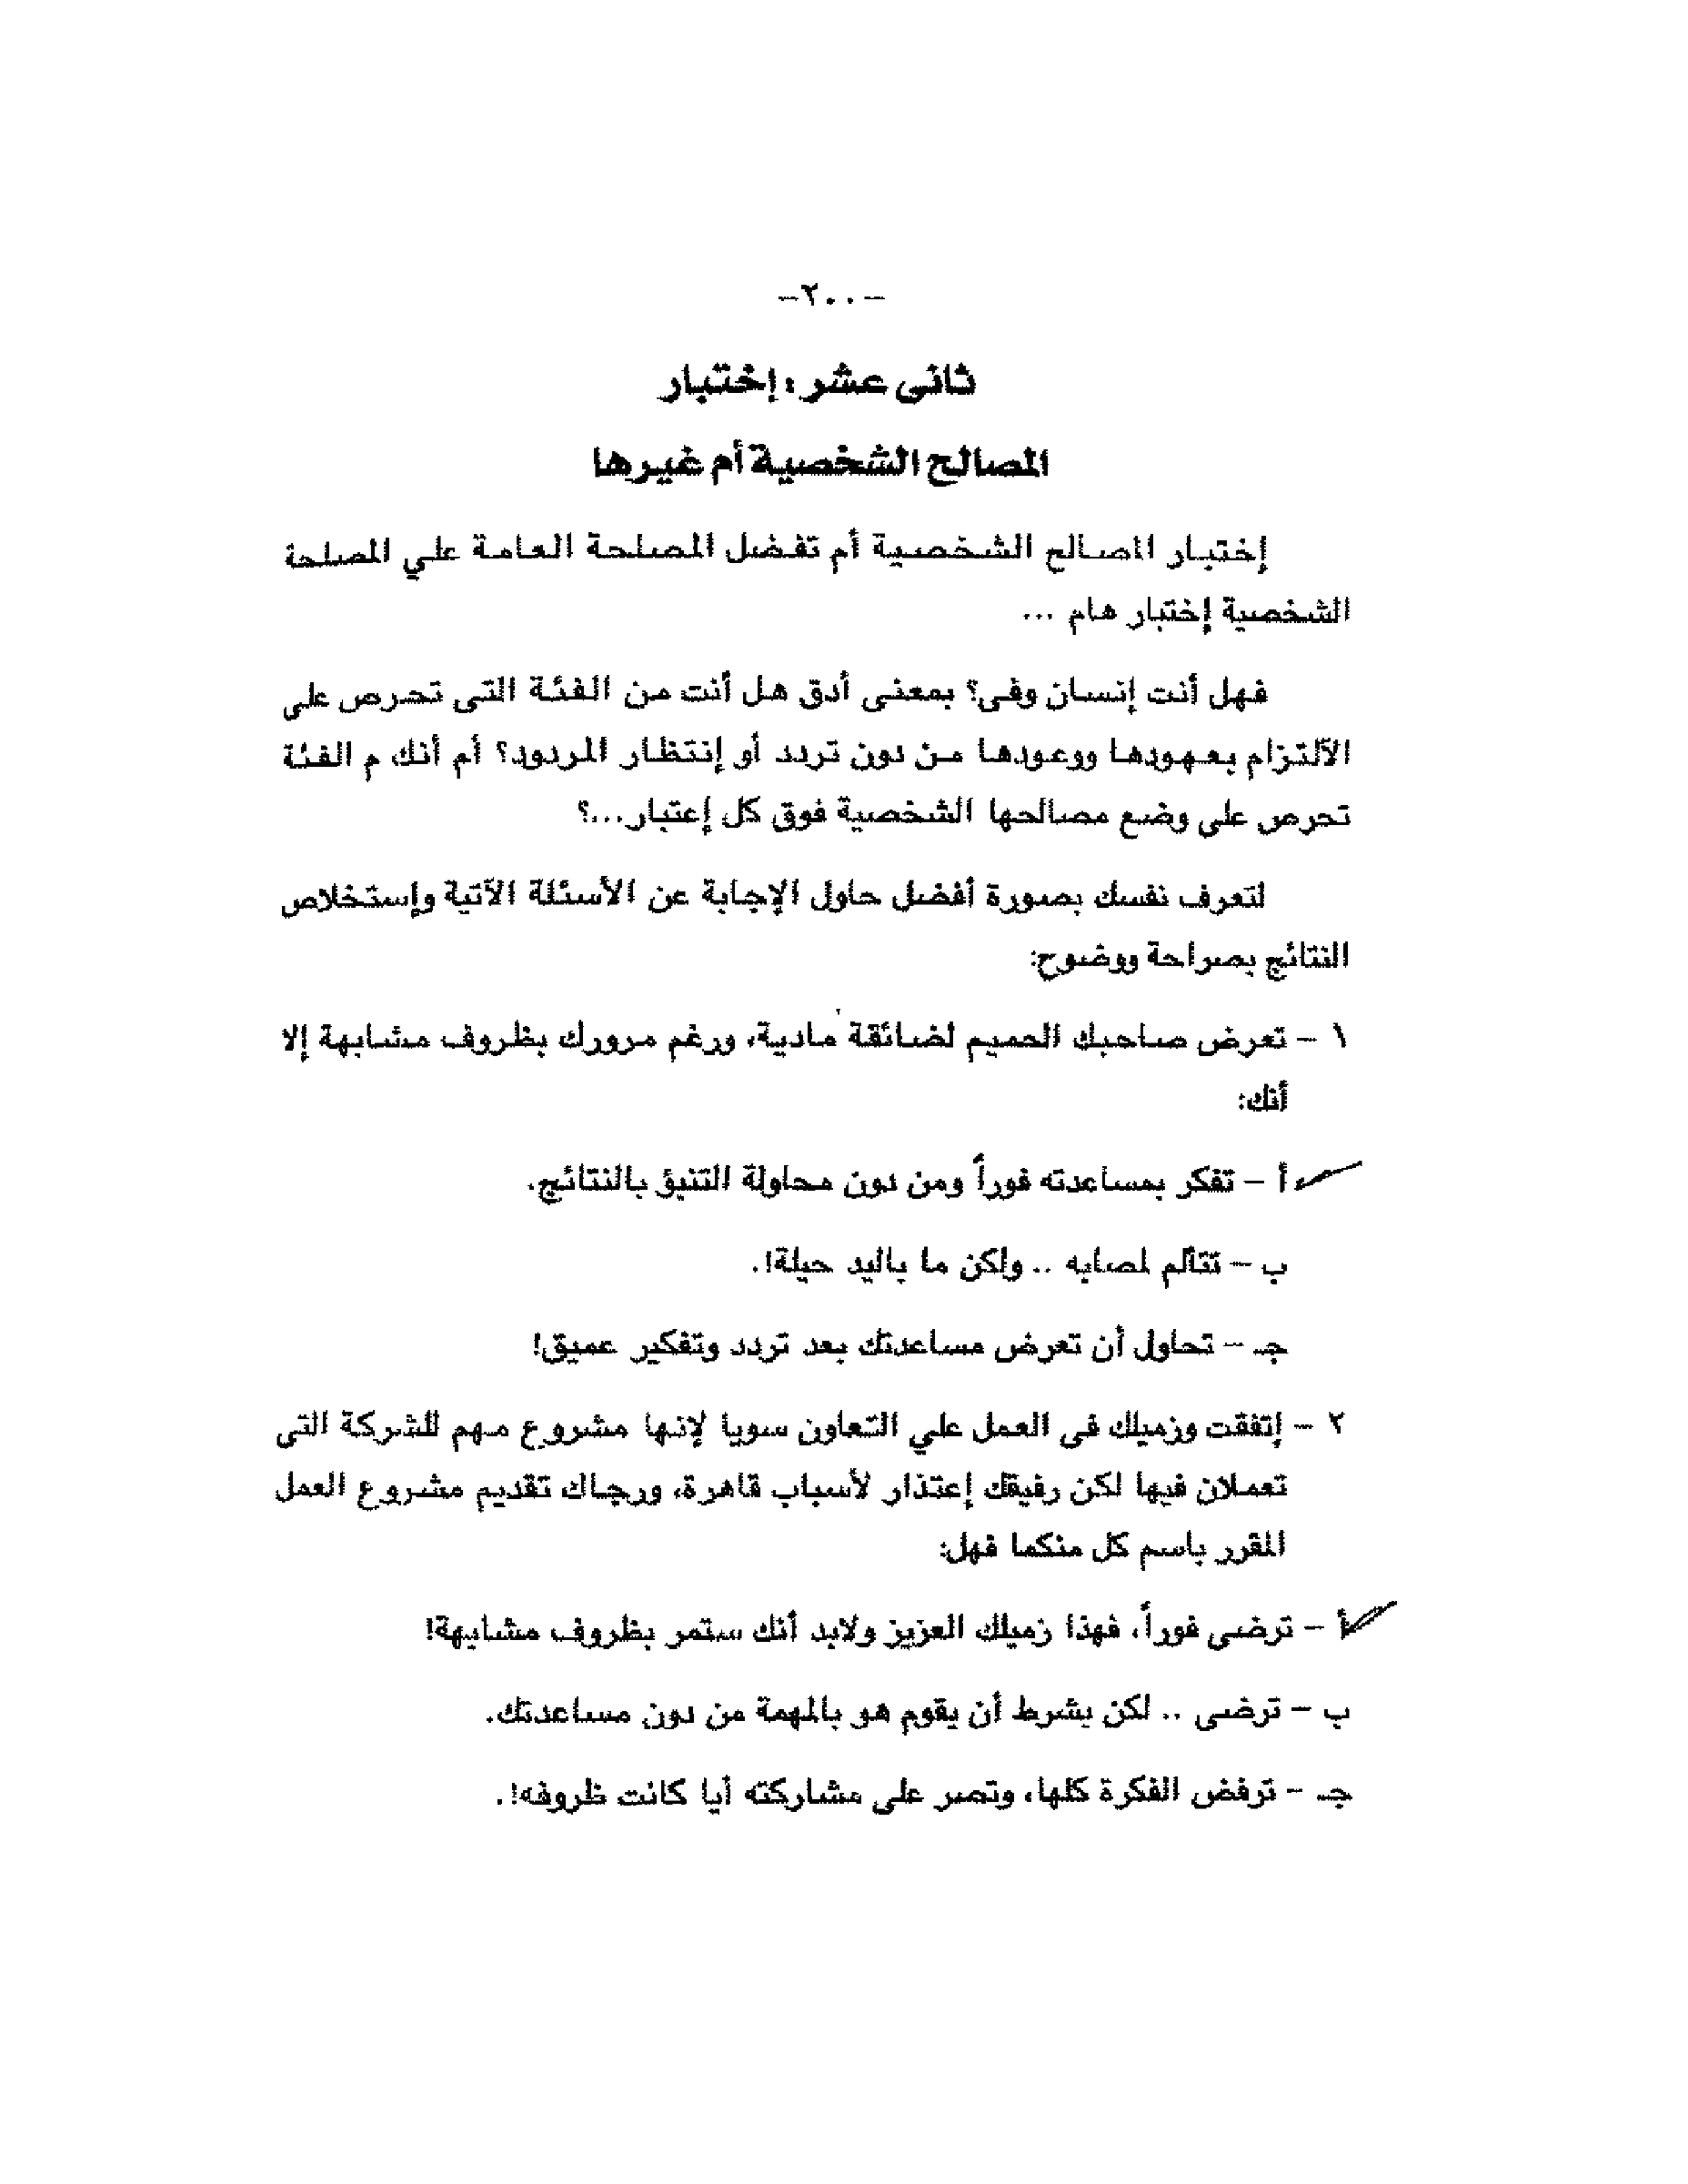 -٢٠٠-
ثانى عشر: إختبار
المصالح الشخصية أم غيرها
إختبار المصالح الشخصية أم تفضل المصلحة العامة علي المصلحة
الشخصية إختبار هام ...
فهل أنت إنسان وفى؟ بمعنى أدق هل أنت من الفئة التى تحرص على
الآلتزام بعهودها ووعودها من دون تردد أو إنتظار المردود؟ أم أنك م الفئة
تحرص على وضع مصالحها الشخصية فوق كل إعتبار...؟
لتعرف نفسك بصورة أفضل حاول الإجابة عن الأسئلة الآتية وإستخلاص
النتائج بصراحة ووضوح:
١ - تعرض صاحبك الحميم لضائقة مادية، ورغم مرورك بظروف مشابهة إلا
أنك:
أ - تفكر بمساعدته فوراً ومن دون محاولة التنبؤ بالنتائج.
ب - تتألم لمصابه .. ولكن ما باليد حيلة!.
جـ - تحاول أن تعرض مساعدتك بعد تردد وتفكير عميق!
٢ - إتفقت وزميلك فى العمل علي التعاون سويا لإنها مشروع مهم للشركة التى
تعملان فيها لكن رفيقك إعتذار لأسباب قاهرة، ورجاك تقديم مشروع العمل
المقرر باسم كل منكما فهل:
أ - ترضى فوراً، فهذا زميلك العزيز ولابد أنك ستمر بظروف مشابهة!
ب - ترضى .. لكن بشرط أن يقوم هو بالمهمة من دون مساعدتك.
جـ - ترفض الفكرة كلها، وتصر على مشاركته أيا كانت ظروفه!.